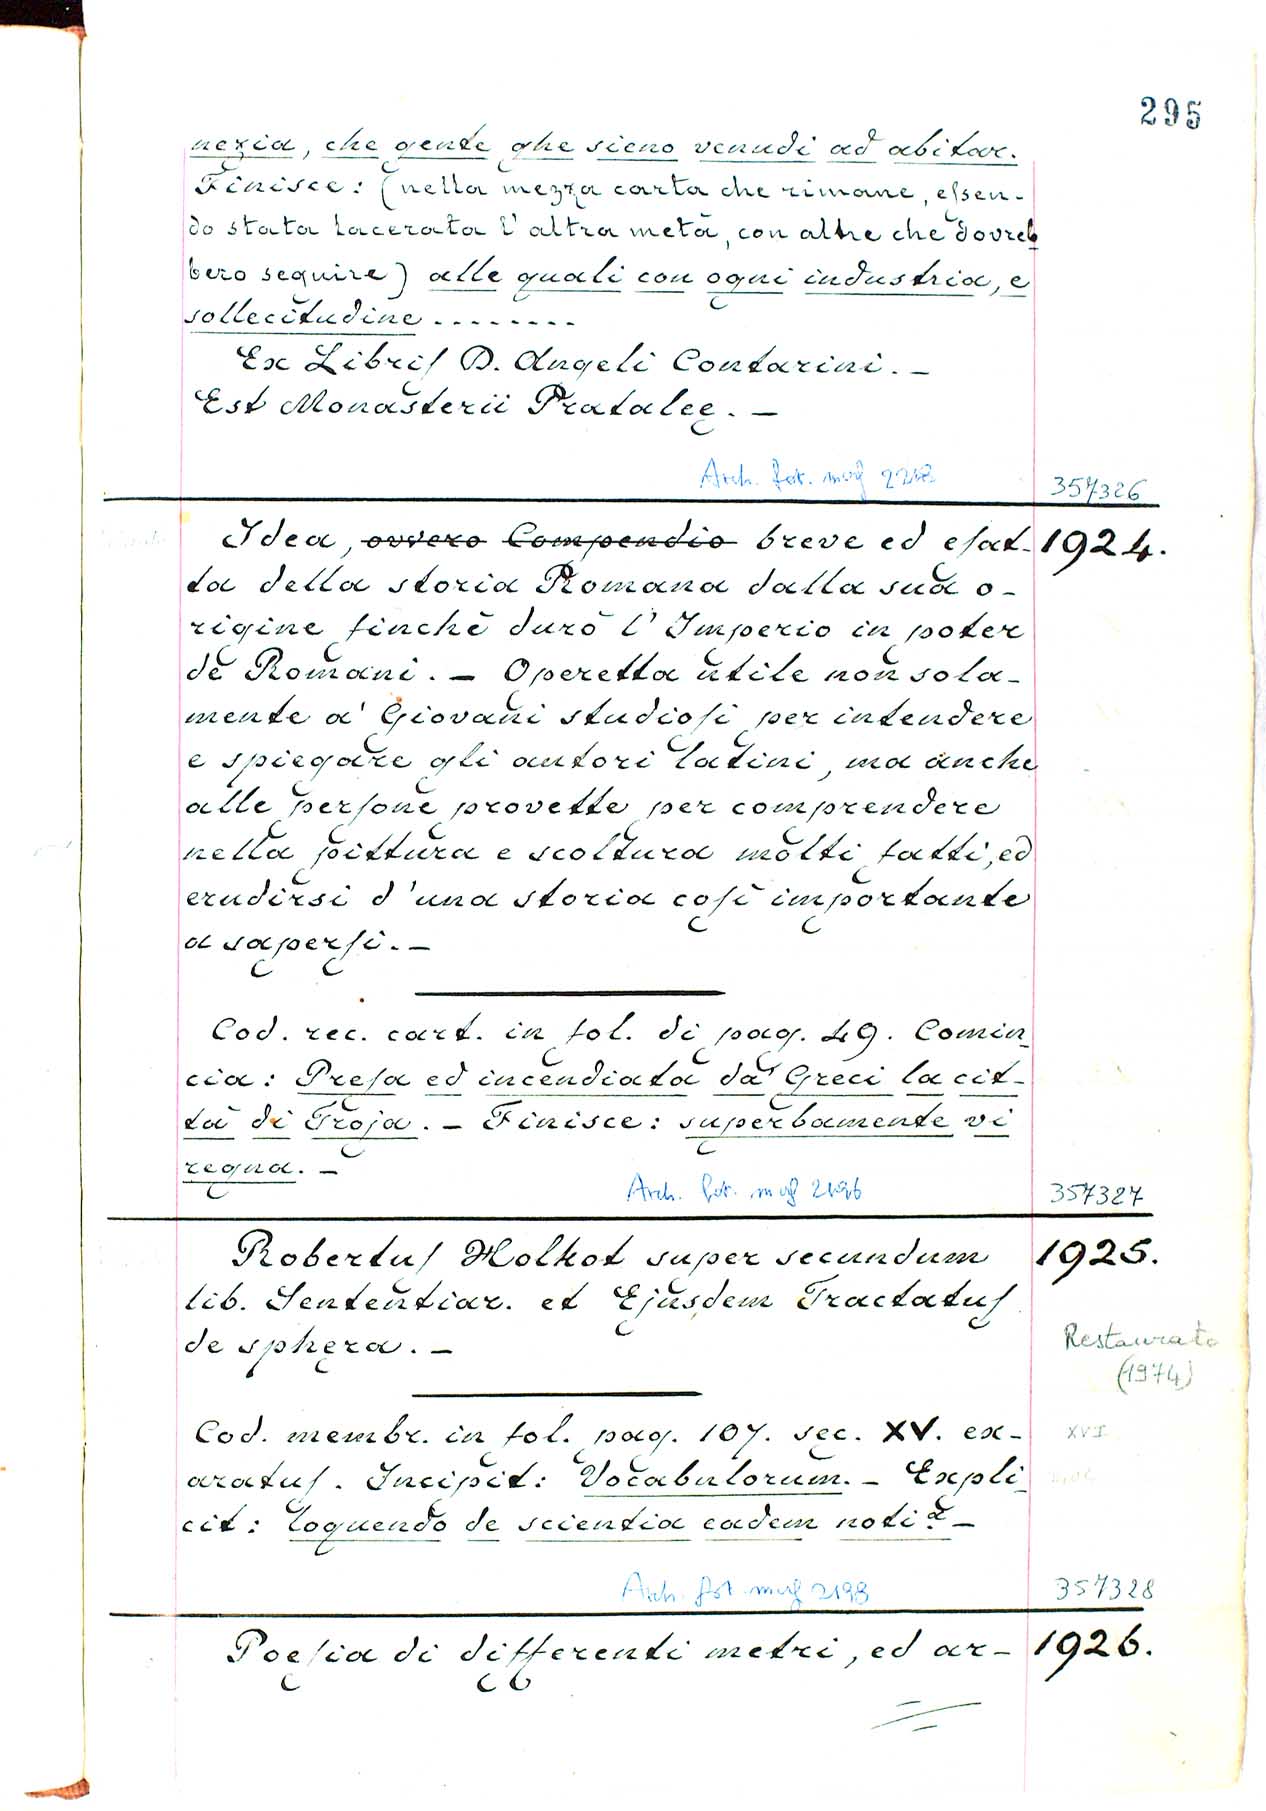 295
nezia, che gente ghe sieno venudi ad abitar.
Finisce: (nella mezza carta che rimane, eſsen-
do stata lacerata l'altra metà, con altre che dovreb
bero seguire) alle quali con ogni industria, e
sollecitudine ........
Ex Libriſ D. Angeli Contarini. –
Est Monasterii Pratalee. –
Arch. fot. mgf 2218
357326
Idea, ovvero Compendio breve ed eſat- 1924.
ta della storia Romana dalla sua o-
rigine finchè durò l'Imperio in poter
de Romani. – Operetta utile non sola-
mente a' Giovani studioſi per intendere
e spiegare gli autori latini, ma anche
alle perſone provette per comprendere
nella pittura e scoltura molti fatti, ed
erudirsi d'una storia coſì importante
a saperſi. –
Cod. rec. cart. in fol. di pag. 49. Comin
cia: Preſa ed incendiata da' Greci la cit-
tà di Troja. – Finisce: superbamente vi
regna. –
Arch. fot. mgf 2196
357327
Robertuſ Holkot super secundum 1925.
lib. Sententiar. et Ejusdem Tractatuſ
de sphera. –
Restaurato
(1974)
Cod. membr. in fol. pag. 107. sec. XV. ex- XVI
aratuſ. Incipit: Vocabulorum. – Expli
cit: loquendo de scientia eadem notiª. –
Arch. fot. mgf 2198
357328
Poeſia di differenti metri, ed ar- 1926.